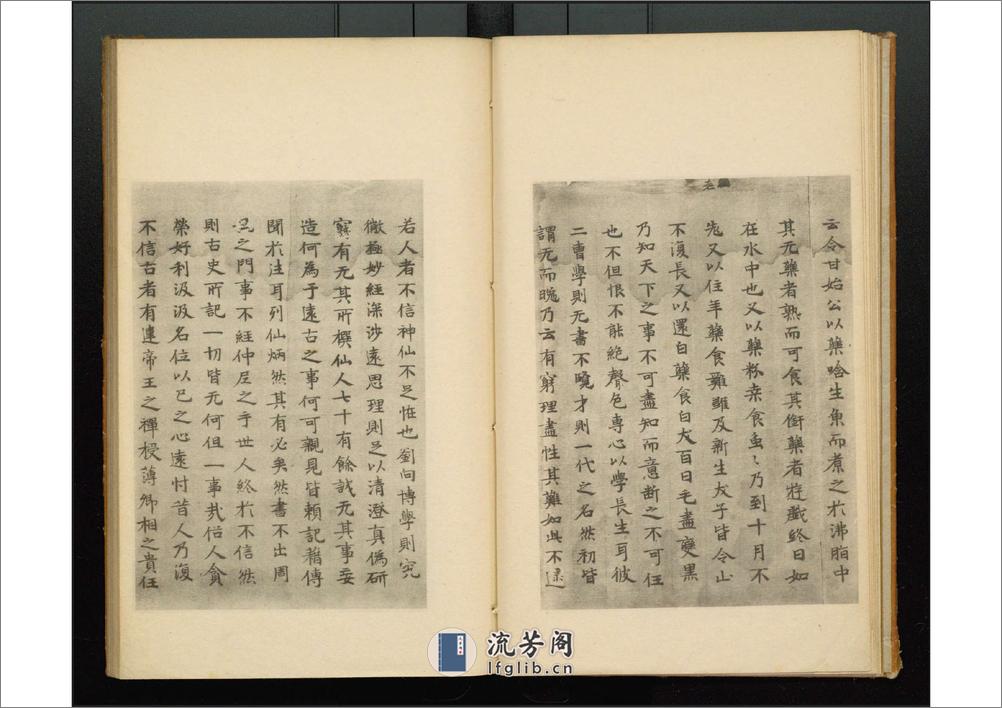 云令甘始公以藥唅生魚而煮之於沸脂中
其无藥者熟而可食其銜藥者遊戲終日如
在水中也又以藥粉桒食虫〻乃到十月不
老又以住年藥食雞雛及新生犬子皆令止
不復長又以還白藥食白犬百日毛盡變黑
乃知天下之事不可盡知而意断之不可任
也不但恨不能絶聲色專心以學長生耳彼
二曹學則无書不曉才則一代之名然初皆
謂无而晚乃云有窮理盡性其難如此不逮
若人者不信神仙不足恠也劉向博學則究
微極妙經深涉遠思理則足以清澄真偽研
覈有无其所撰仙人七十有餘誠无其事妄
造何為乎遠古之事何可親見皆頼記藉傳
聞於徃耳列仙炳然其有必矣然書不出周
孔之門事不經仲尼之手世人終於不信然
則古史所記一切皆无何但一事㢤俗人貪
榮好利汲汲名位以己之心遠忖昔人乃復
不信古者有逮帝王之禪授薄卿相之貴任
流芳阁
lfglib.cn